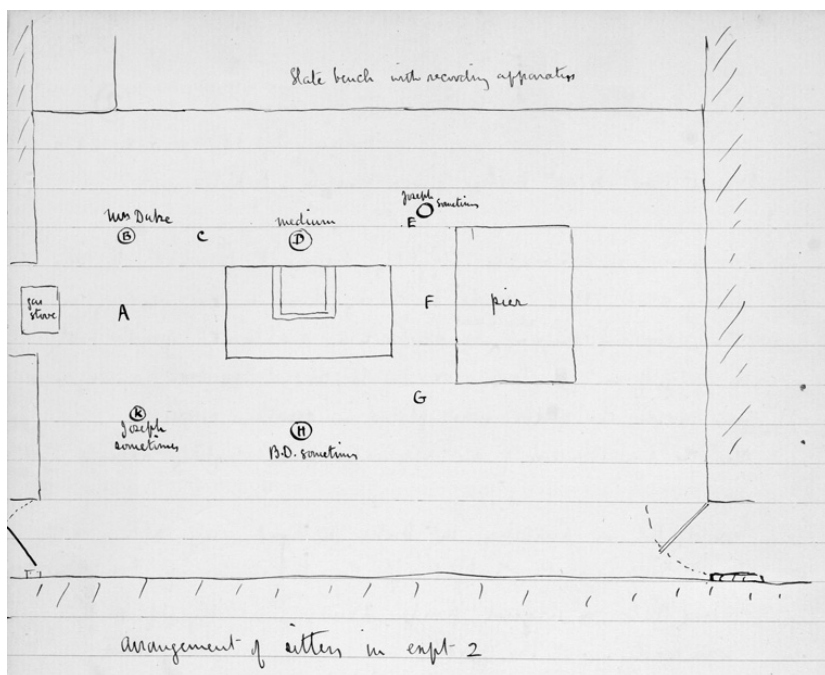 Slate bench with recording apparatus
Joseph
sometimes
Mrs Duke
medium
E
B
C
D
gas
stove
A
F
pier
G
K
Joseph
sometimes
H
B.D. sometimes
arrangement of sitters in expt 2